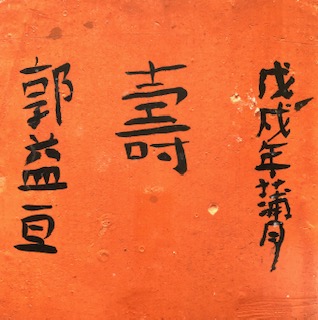 戊戌年蒲月
壽
郭益亘